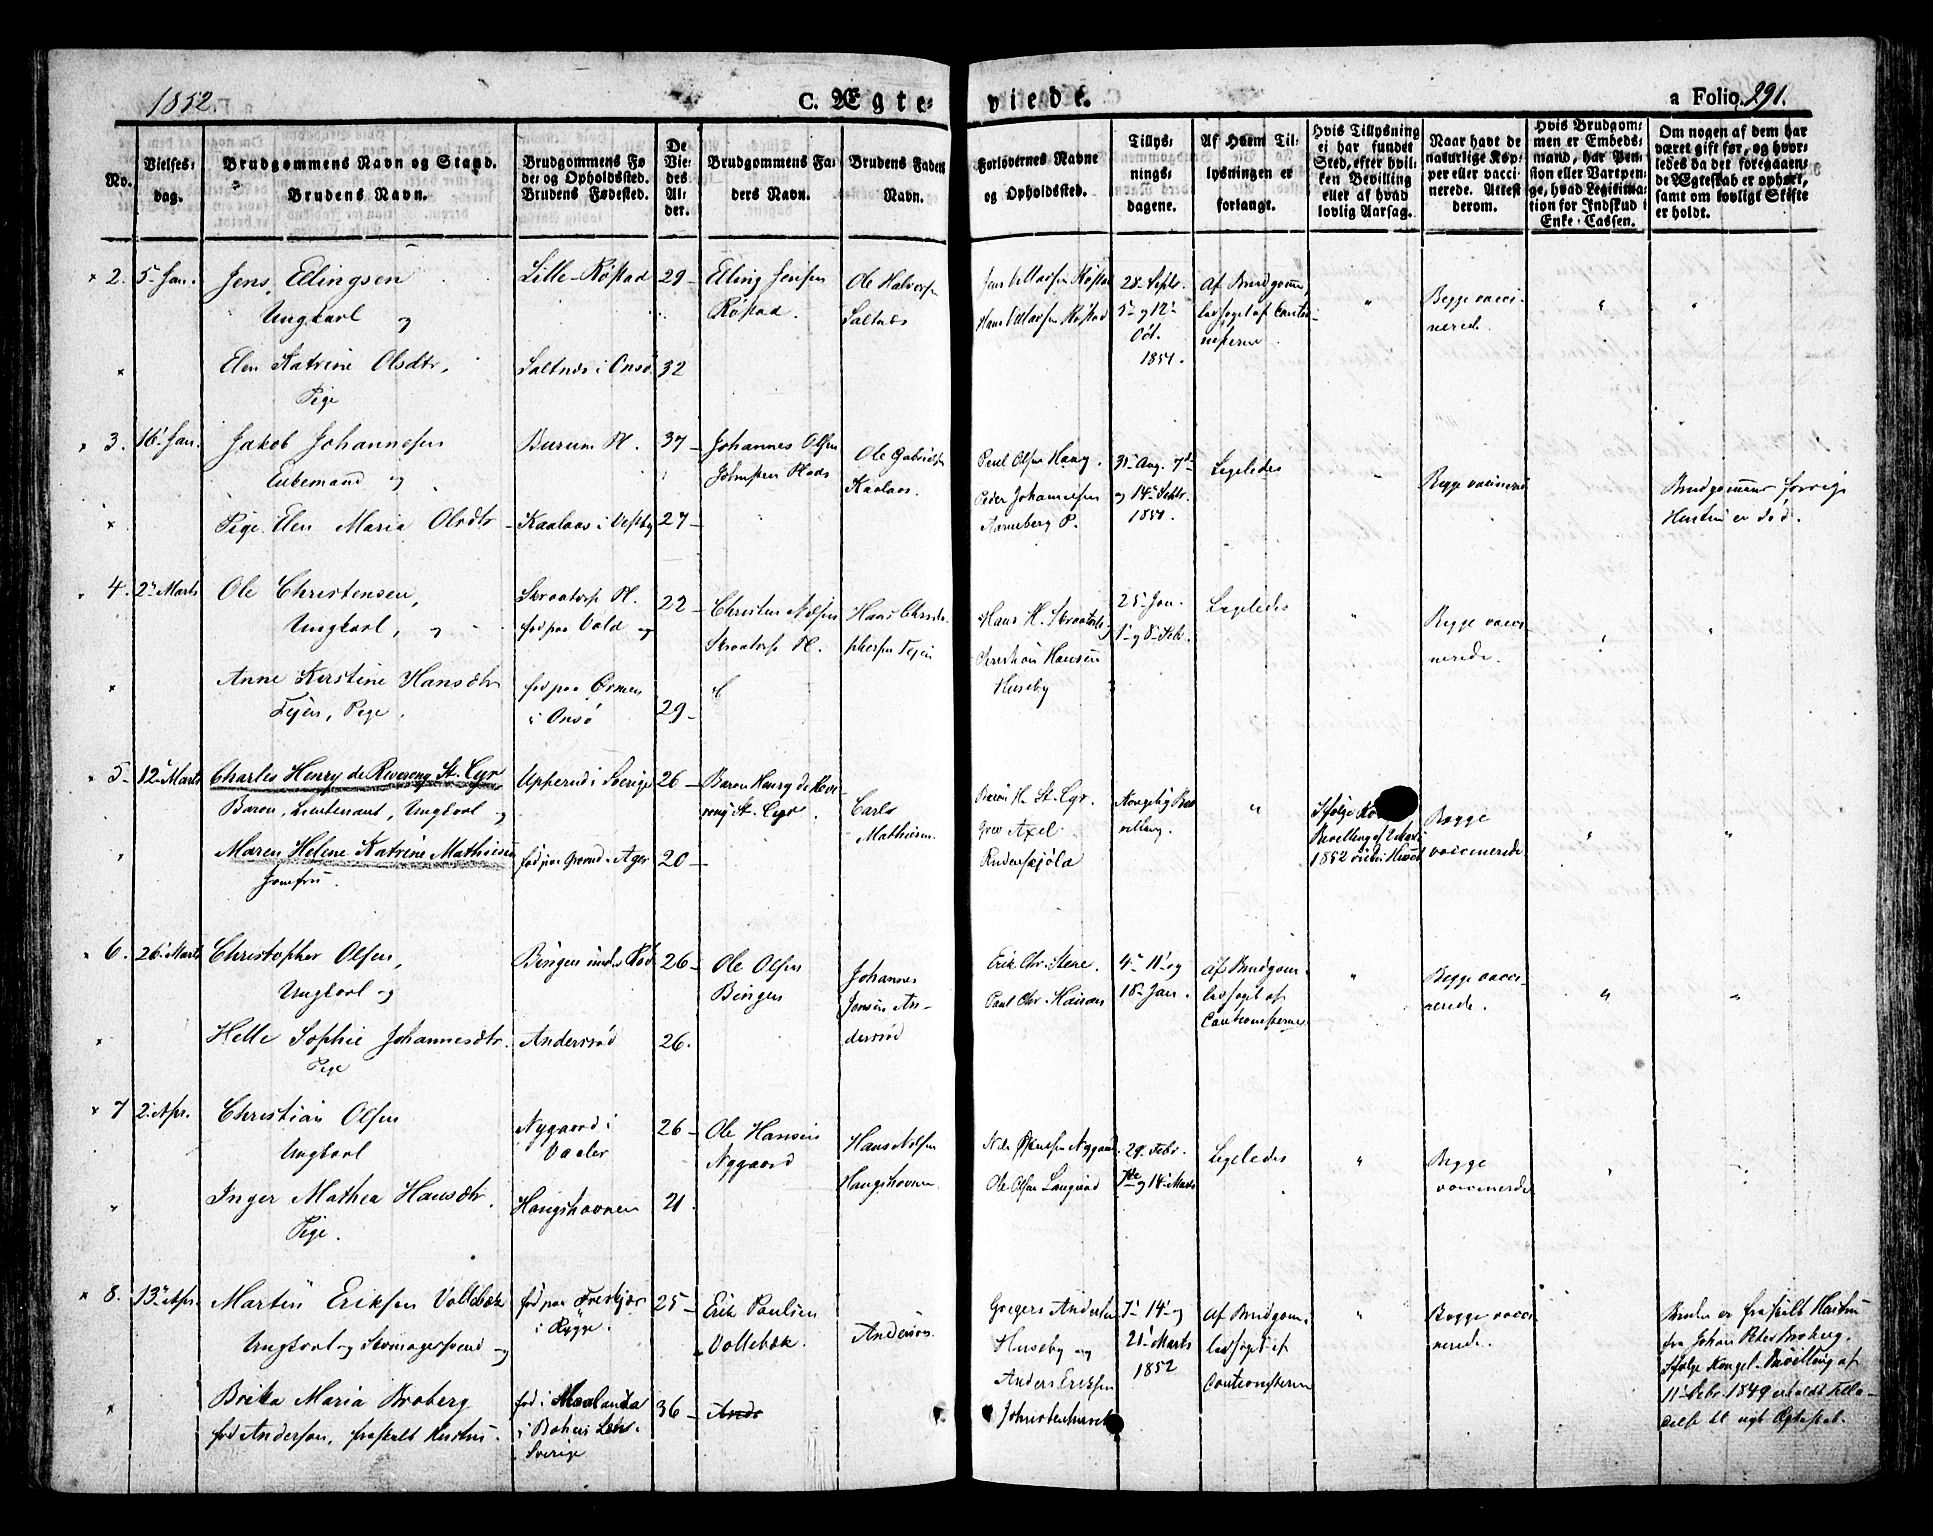 1852.
C. Ægte-
viede.
a Folio 291.
No.
Vielses-
dag.
Brudgommens Navn og Stand.
Brudens Navn.
Brudgommens Fø-
de- og Opholdssted.
Brudens Fødested.
De
Vie-
des
Al-
der.
Brudgommens Fa-
ders Navn.
Brudens Faders
Navn.
Forlovernes Navne
og Opholdssted.
Tillys-
nings-
dagene.
Af Hvem Til-
lysningen er
forlangt.
Hvis Tillysning
ei har fundet
Sted, efter hvil-
ken Bevilling
eller af hvad
lovlig Aarsag.
Naar havt de
naturlige Kop-
per eller vacci-
nerede. Attest
derom.
Hvis Brudgom-
men er Embeds-
mand, har Pen-
sion eller Vartpen-
ge, hvad Legitima-
tion for Indskud i
Enke-Cassen.
Om nogen af dem har
været gift før, og hvor-
ledes da det foregaaen-
de Ægteskab er ophørt,
samt om lovligt Skifte
er holdt.
2. 5 Jan.
Jens Ellingsen
Ungkarl og
Elen Katrine Olsdtr,
Pige
Lille-Røstad
Saltnæs i Onsø
29
32
Elling Jensen
Røstad.
Ole Halvorsen
Saltnæs
28 Septr.
5 og 12
Oct.
1851.
Af Brudgommen
ledsaget af Cautio-
nisterne.
"
Begge vacci-
nerede.
"
"
3. 16 Jan.
Jakob Johannesen
Enkemand og
Pige Elen Maria Olsdtr
Burum Pl.
Kaalaas i Vestby
37
27
Johannes Olsen
Ole Gabrielsen
Kaalaas.
Poul Olsen Haug.
Peder Johannesen
31 Aug. 7de
og 14 Septr.
1851.
Ligeledes
"
Begge vaccinerede
"
Brudgommens forrige
Hustru er død.
4. 2 Marts
Ole Christensen,
Ungkarl, og
Anne Kirstine Hansdtr
Tejen, Pige.
Skraatorp Pl.
fød paa Vold og
fød paa Ørmen
i Onsø
22
29
Christen Nilsen
Skraatorp Pl.
Hans Christo-
phersen Tejen
Christian Hansen
Huseby
25 Jan.
1 og 8 Feb.
Ligeledes
"
Begge vacci-
nerede.
"
5 12 Marts
Charles Henry de Reverony St. Cyr
Baron, Lieutenant, Ungkarl og
Maren Helene Katrine Mathiesen
Jomfru.
Upperud i Sverige
26
20
Baron Henry de Reve-
rony St. Cyr.
Carls
Mathiesen
Baron H. St. Cyr.
Grev Axel
Ruderskjöld
Kongelig Be-
villing.
"
Ifølge
Bevilling af 2 Marts
1852 viet i Huset
Begge
vaccinerede
"
"
6. 26 Marts
Christopher Olsen,
Ungkarl og
Helle Sophie Johannesdtr.
Pige
Bingen under Rød
Andersrød
26
26.
Ole Olsen
Bingen
Johannes
Jensen An-
dersrød
Erik Chr. Stene.
4 11 og
18 Jan.
Af Brudgom.
ledsaget af
Cautionisterne
"
Begge vacci-
nerede.
"
"
7 2 Apr.
Christian Olsen
Ungkarl
Inger Mathea Hansdtr.
Pige.
Nygaard i
Vaaler
Haugshavnen
26
21
Ole Hansen
Nygaard
Hans Nilsen
Haugshavnen
29 Febr.
7de og 14 Marts
Ligeledes
"
Begge
vaccinerede
"
8. 13 Apr.
Martin Eriksen Vallebæk
Ungkarl og Skomagersvend og
Brita Maria Broberg
fød Anderson, fraskilt Hustru
i Rygge.
fød i Marlanda
i Bohus Lehn
Sverige
25
36
Erik Paulsen
Vallebæk.
Anderson.
Gregers Andersen
Huseby og
Anders Eriksen
7 14 og
21 Marts
1852
Af Brudgom.
ledsaget af
Cautionisterne
"
Begge vacci-
nerede.
Bruden er fraskilt Hustru
fra Johan Peter Broberg.
Ifølge Kongel. Bevilling af
11 Febr. 1849 erholdt Tilla-
delse til nyt Ægteskab.